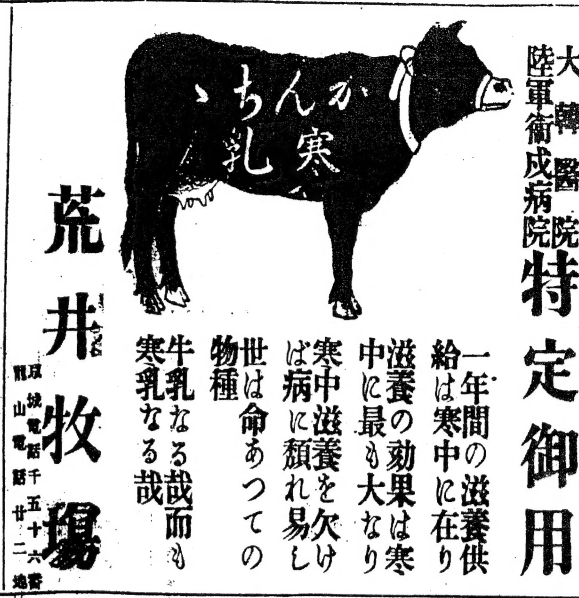 大韓醫院
陸軍衛戍病院
特定御用
かんちゝ
寒乳
一年間の滋養供
給は寒中に在り
滋養の効果は寒
中に最も大なり
寒中滋養を欠け
ば病に頽れ易し
世は命あつての
物種
牛乳なる哉而も
寒乳なる哉
荒井牧場
京城電話千五十六番
龍山電話廿二